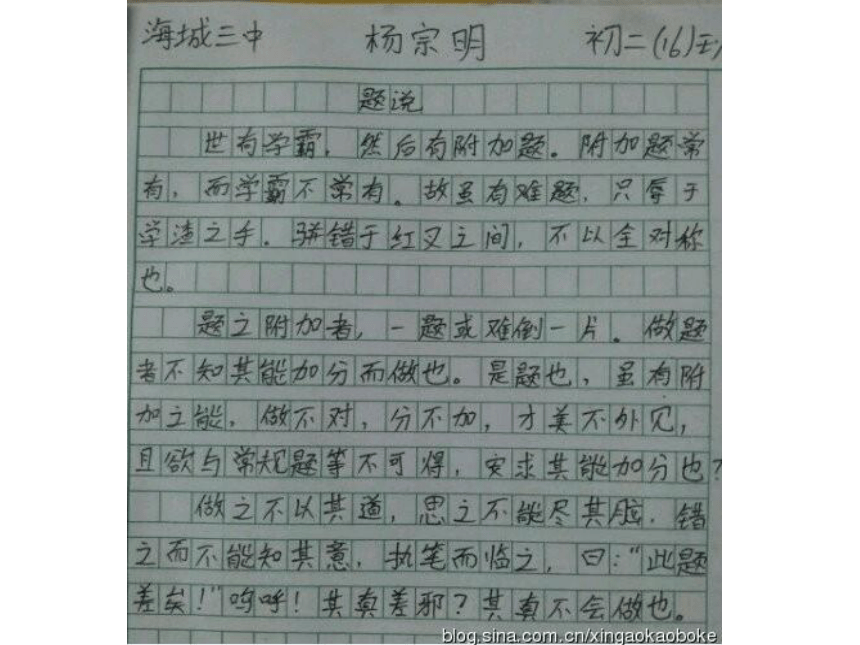 海城三中 杨宗明 初二(16)
题说
世有学霸，然后有附加题。附加题常
有，而学霸不常有。故虽有难题，只辱于
学渣之手。骈错于红叉之间，不以全对称
也。
题之附加者，一题或难倒一片。做题
者不知其能加分而做也。是题也，虽有附
加之能，做不对，分不加，才美不外见，
且欲与常规题等不可得，安求其能加分也？
做之不以其道，思之不能尽其脑，错
之而不能知其意，执笔而临之，曰：“此题
差矣！”呜呼！其真差邪？其真不会做也。
blog.sina.com.cn/xingaokaoboke